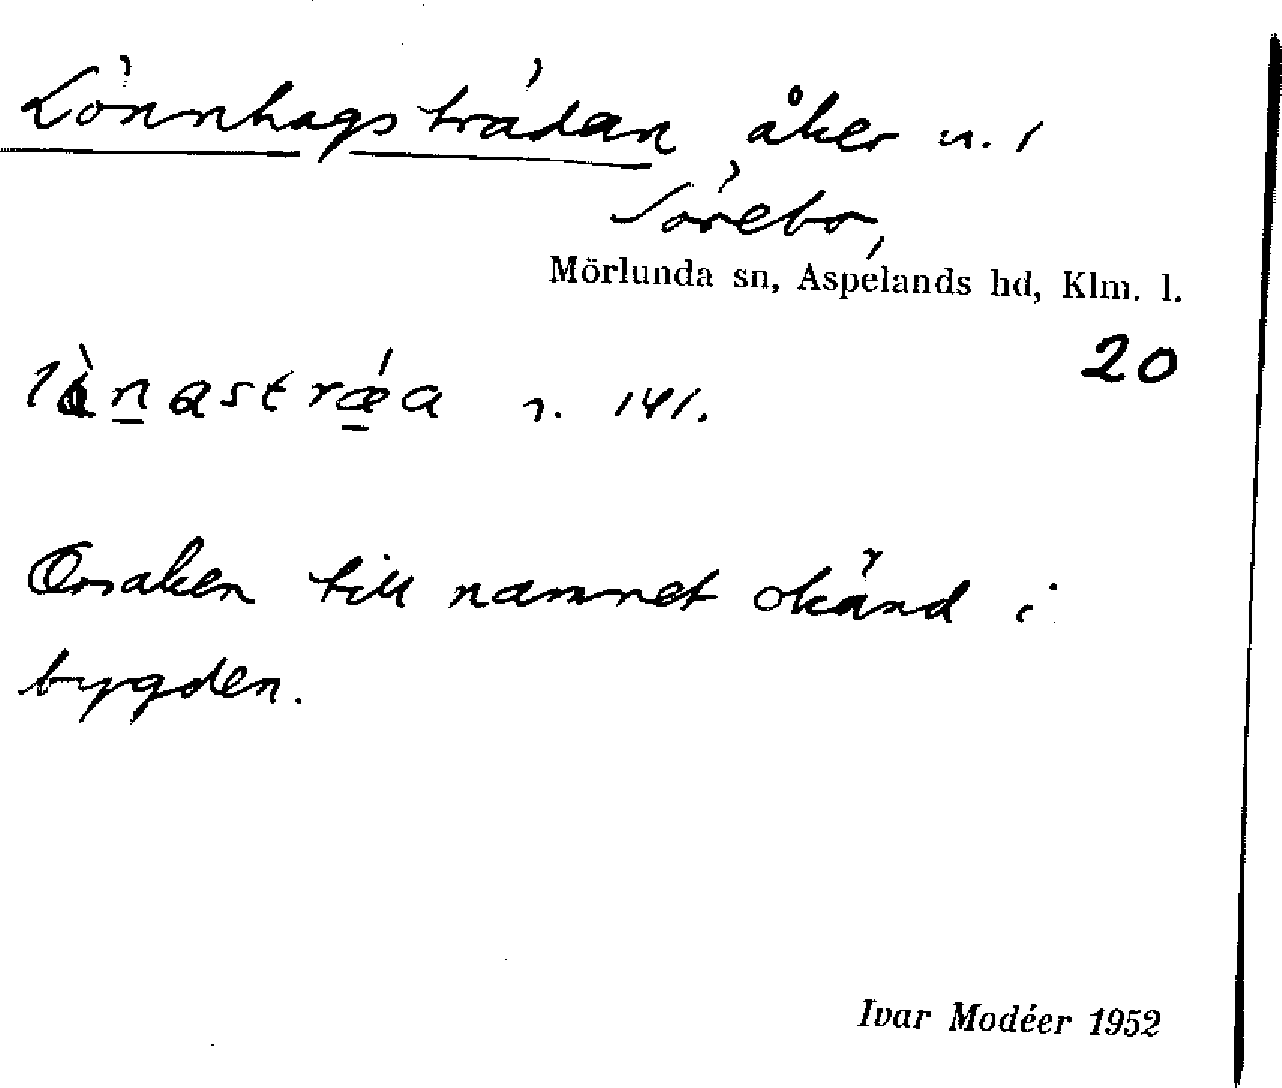 Lönnhagsträdan åker n. 1
Sörebo,
Mörlunda sn, Aspelands hd, Klm. l.
20
n. 141.
Orsaken till namnet okänd i
bygden.
Ivar Modéer 1952